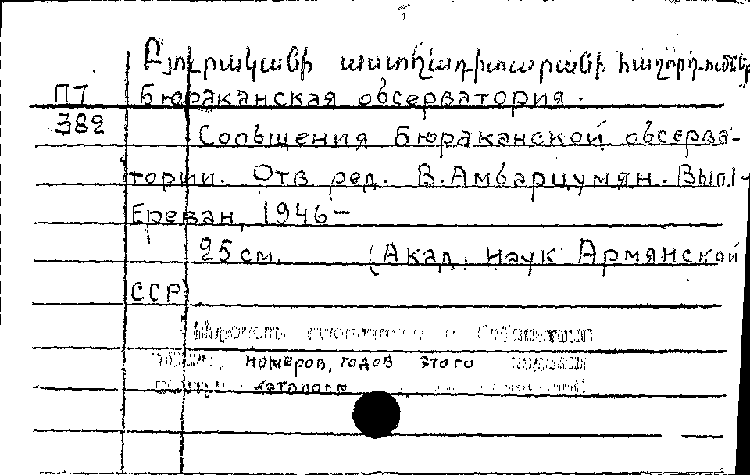 Բյուրականի աստղադիտարանի հաղորդումներ
ПТ Бюраканская обсерватория.
382 Сообщения Бюраканской обсерва-
тории. Отв. ред. В. Амбарцумян. Вып. 1-
Ереван, 1946-
25 см. (Акад. наук Армянской
ССР)
номеров, годов этого
каталога